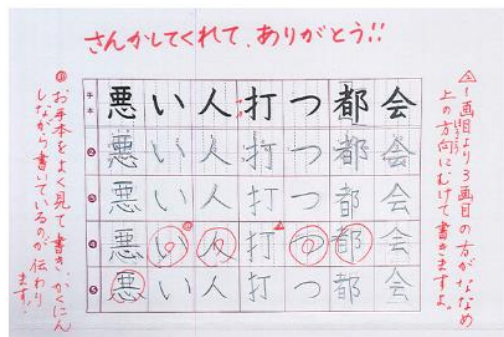 さんかしてくれて、ありがとう!!
△1画目より3画目の方がななめ
上の方向にむけて書きますよ。
手本 悪い人打つ都会
② 悪い人打つ都会
③ 悪い人打つ都会
④ 悪い人打つ都会
⑤ 悪い人打つ都会
お手本をよく見て書き、かくにん
しながら書いているのが伝わり
ます!